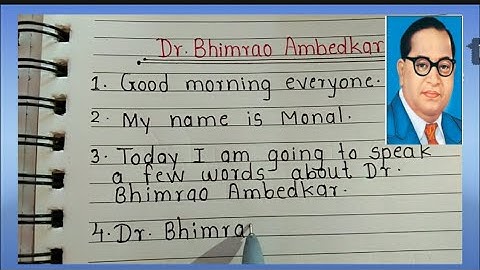 Dr. Bhimrao Ambedkar
1. Good morning everyone.
2. My name is Monal.
3. Today I am going to speak
a few words about Dr.
Bhimrao Ambedkar.
4. Dr. Bhimra